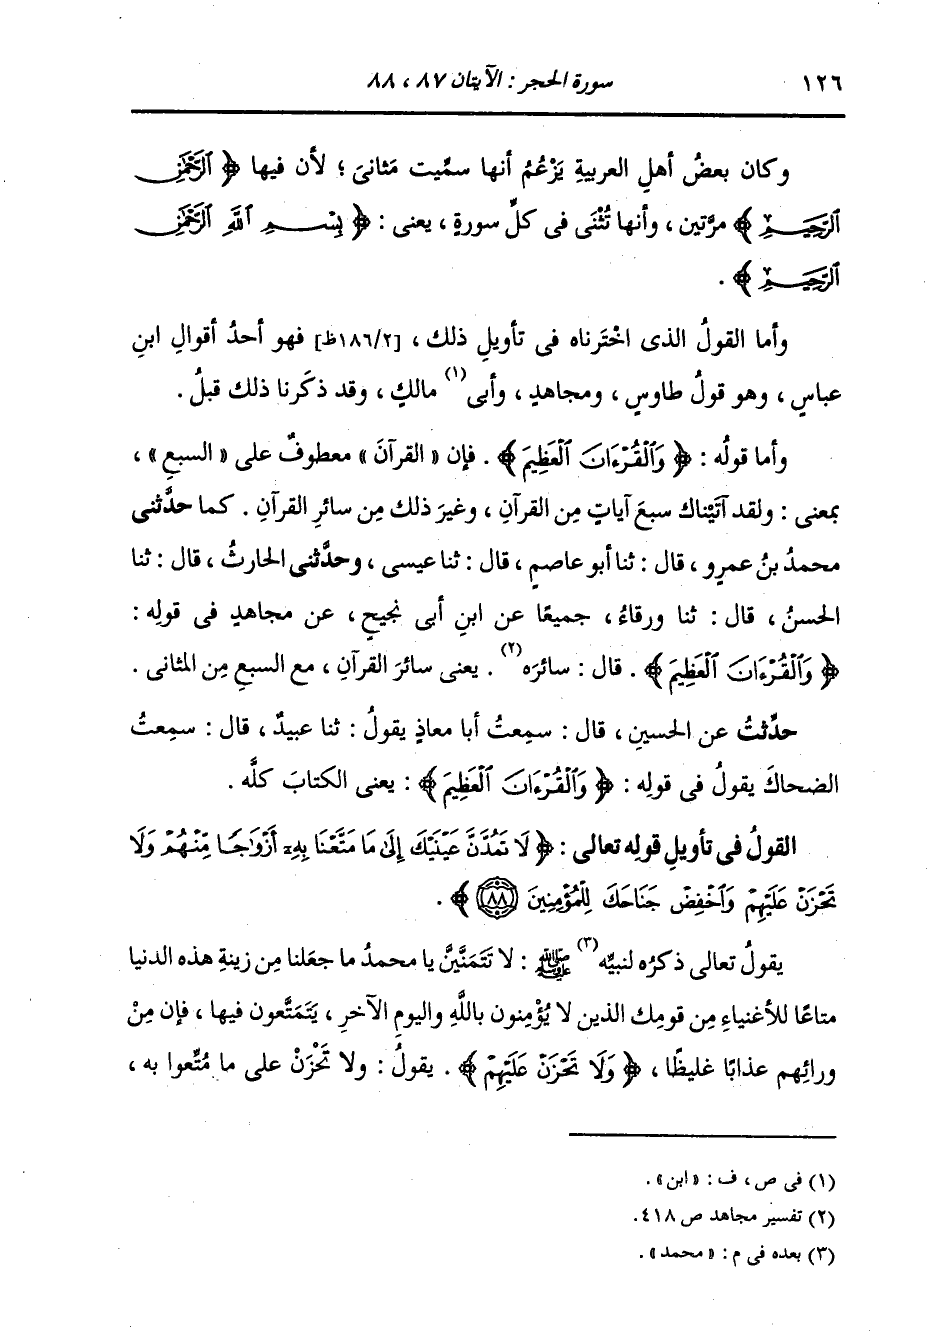 ١٢٦ سورة الحجر : الآيتان ٨٧ ، ٨٨
وكان بعضُ أهلِ العربيةِ يَزْعُمُ أنها سمِّيت مَثانىَ ؛ لأن فيها ﴿ ٱلرَّحْمَـٰنِ
ٱلرَّحِيمِ ﴾ مرَّتين ، وأنها تُثْنَى فى كلِّ سورةٍ ، يعنى : ﴿ بِسْمِ ٱللَّهِ ٱلرَّحْمَـٰنِ
ٱلرَّحِيمِ ﴾ .
وأما القولُ الذى اخْتَرناه فى تأويلِ ذلك ، [١٨٦/٢ظ] فهو أحدُ أقوالِ ابنِ
عباسٍ ، وهو قولُ طاوسٍ ، ومجاهدٍ ، وأبى(١) مالكٍ ، وقد ذكَرنا ذلك قبلُ .
وأما قولُه : ﴿ وَٱلْقُرْءَانَ ٱلْعَظِيمَ ﴾ . فإن « القرآنَ » معطوفٌ على « السبعِ » ،
بمعنى : ولقد آتَيْناك سبعَ آياتٍ مِن القرآنِ ، وغيرَ ذلك مِن سائرِ القرآنِ . كما حدَّثنى
محمدُ بنُ عمرٍو ، قال : ثنا أبو عاصمٍ ، قال : ثنا عيسى ، وحدَّثنى الحارثُ ، قال : ثنا
الحسنُ ، قال : ثنا ورقاءُ ، جميعًا عن ابنِ أبى نَجيحٍ ، عن مجاهدٍ فى قولِه :
﴿ وَٱلْقُرْءَانَ ٱلْعَظِيمَ ﴾ . قال : سائرَه(٢) . يعنى سائرَ القرآنِ ، مع السبعِ مِن المثانى .
حدِّثتُ عن الحسينِ ، قال : سمِعتُ أبا معاذٍ يقولُ : ثنا عبيدٌ ، قال : سمِعتُ
الضحاكَ يقولُ فى قولِه : ﴿ وَٱلْقُرْءَانَ ٱلْعَظِيمَ ﴾ : يعنى الكتابَ كلَّه .
القولُ فى تأويلِ قولِه تعالى : ﴿ لَا تَمُدَّنَّ عَيْنَيْكَ إِلَىٰ مَا مَتَّعْنَا بِهِۦ أَزْوَٰجًا مِّنْهُمْ وَلَا
تَحْزَنْ عَلَيْهِمْ وَٱخْفِضْ جَنَاحَكَ لِلْمُؤْمِنِينَ ٨٨ ﴾ .
يقولُ تعالى ذكرُه لنبيِّه(٣) ﷺ : لا تَتَمَنَّيَنَّ يا محمدُ ما جعَلنا مِن زينةِ هذه الدنيا
متاعًا للأغنياءِ مِن قومِك الذين لا يُؤْمِنون باللَّهِ واليومِ الآخرِ ، يَتَمَتَّعون فيها ، فإن مِنْ
ورائِهم عذابًا غليظًا ، ﴿ وَلَا تَحْزَنْ عَلَيْهِمْ ﴾ . يقولُ : ولا تَحْزَنْ على ما مُتِّعوا به ،
(١) فى ص ، ف : « ابن » .
(٢) تفسير مجاهد ص ٤١٨.
(٣) بعده فى م : « محمد » .